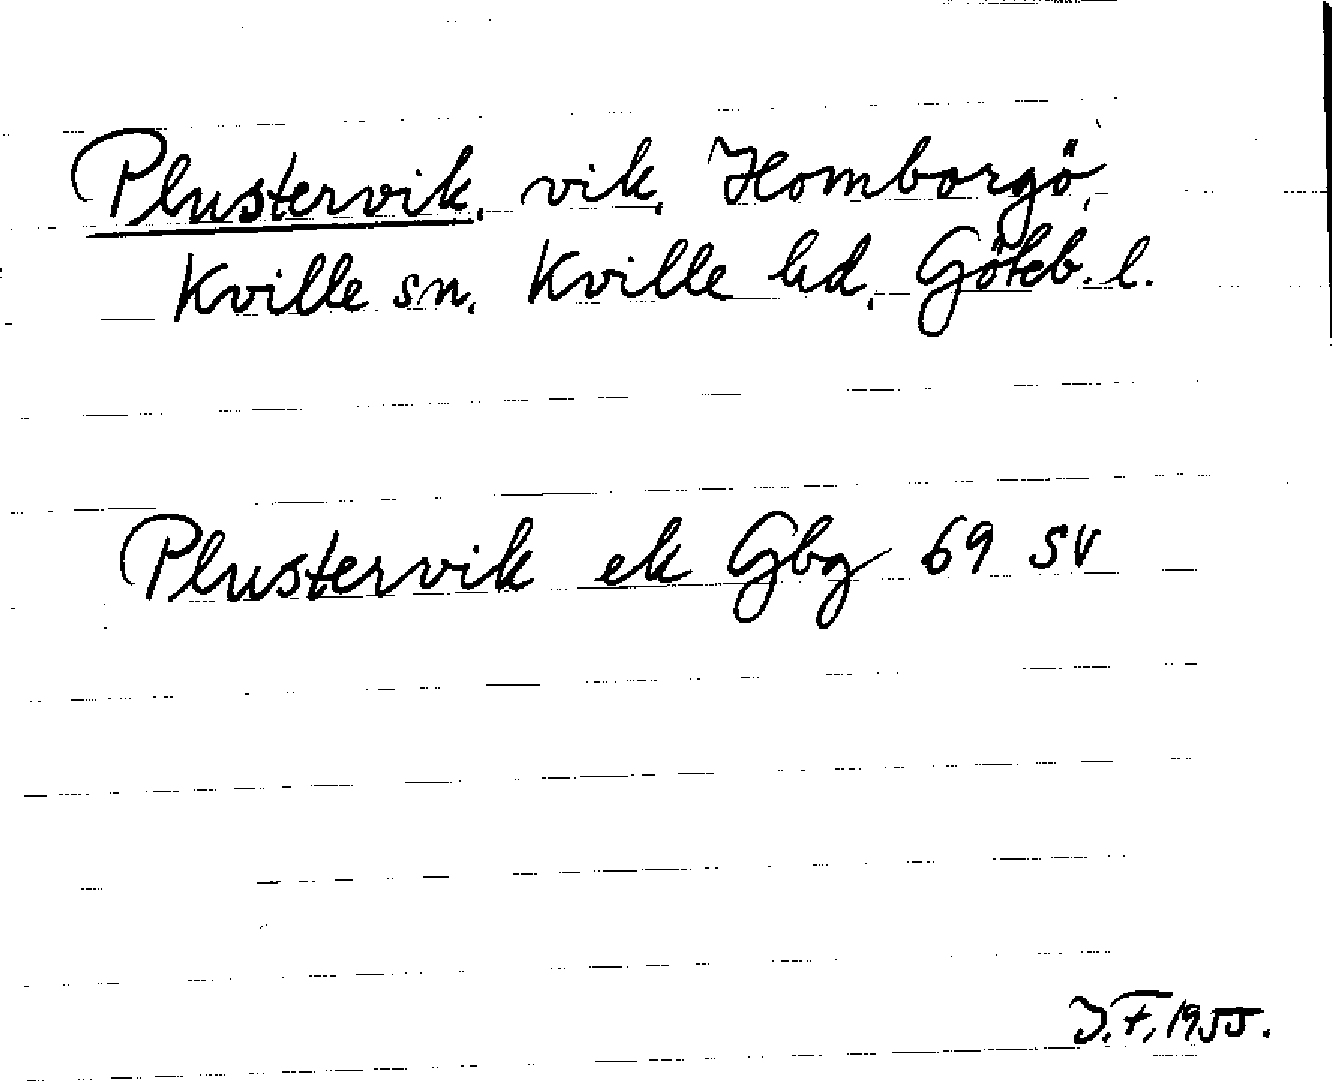 Plustervik, vik, Homborgö,
Kville sn, Kville hd, Göteb. l.
Plustervik ek Gbg 69 SV
J.F, 1955.